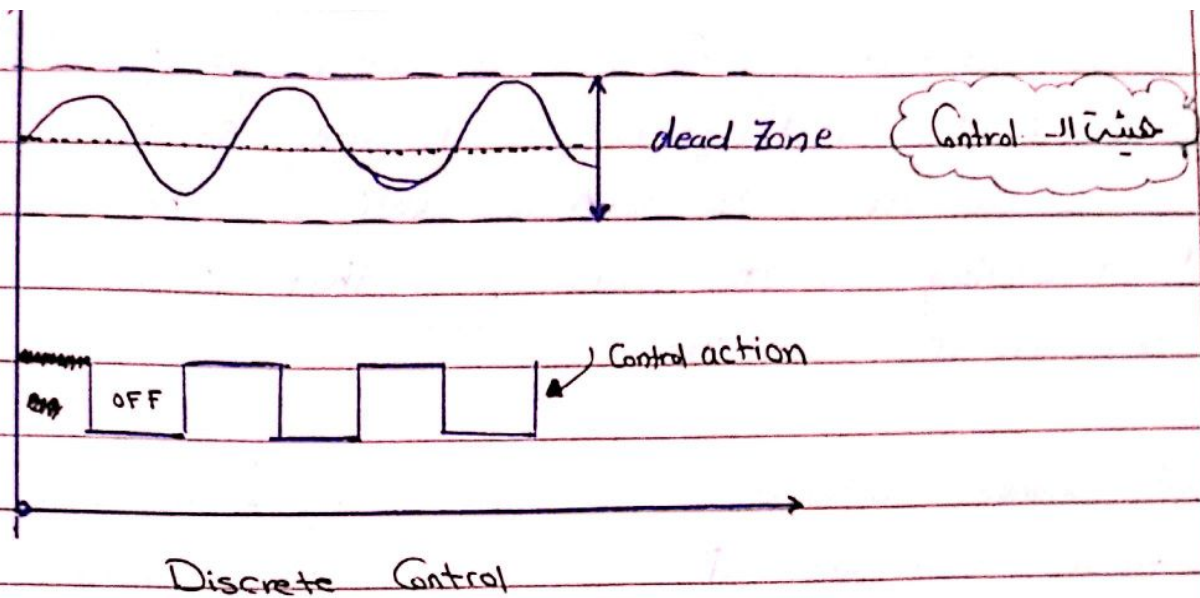 dead Zone
هيئة الـ Control
Control action
OFF
Discrete Control